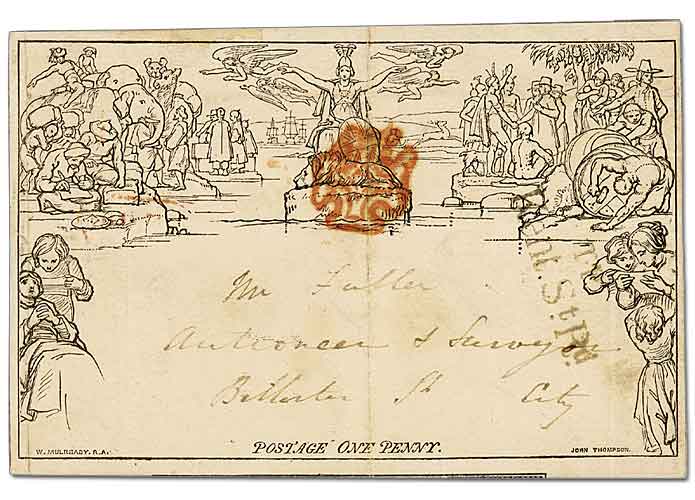 nt. St P.
Mr Fuller
Auctioneer & Surveyor
St City
POSTAGE ONE PENNY.
W. MULREADY. R.A.
JOHN THOMPSON.